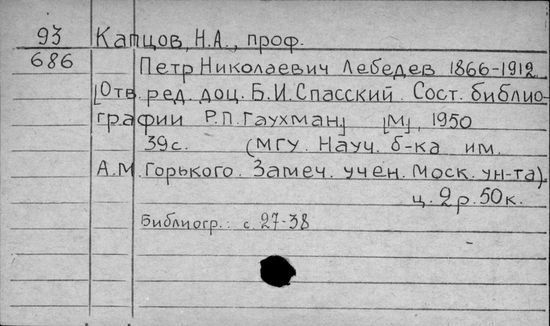 93 Капцов, Н.А., проф.
686 Петр Николаевич Лебедев 1866-1912
[Отв. ред. доц. Б.И.Спасский. Сост. библио-
графии Р.П.Гаухман] [М], 1950
39с. (МГУ. Науч. б-ка им.
А.М.Горького. Замеч. учен. Моск. ун-та).
ц. 2р.50к.
Библиогр.: с. 27-38